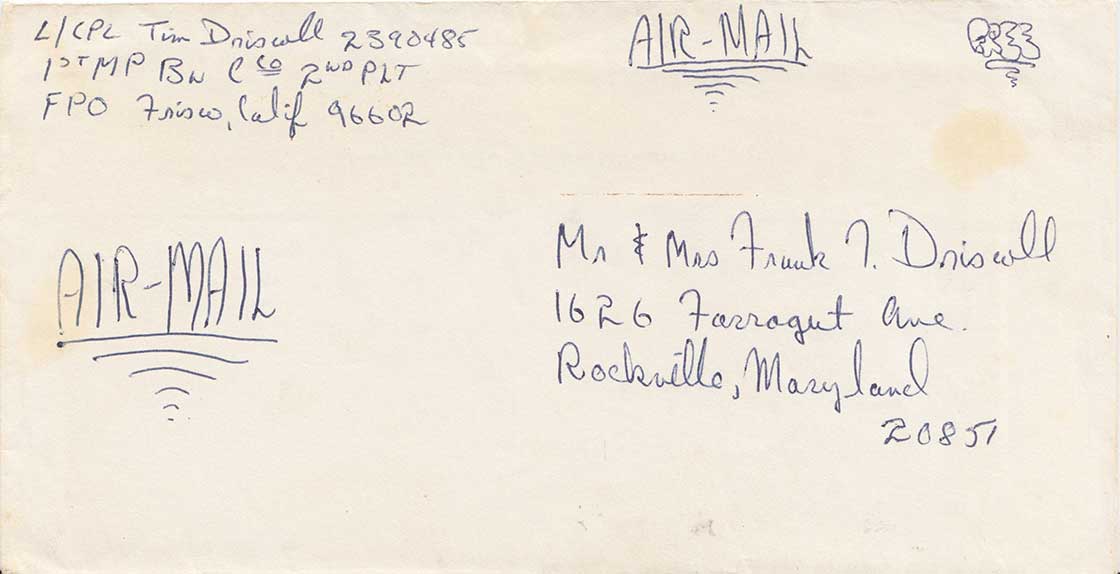 L/CPL Tim Driscoll 2390485
1ST MP BN C CO 2ND PLT
FPO Frisco, Calif 96602
AIR-MAIL
FREE
AIR-MAIL
Mr & Mrs Frank T. Driscoll
1626 Farragut Ave.
Rockville, Maryland
20851